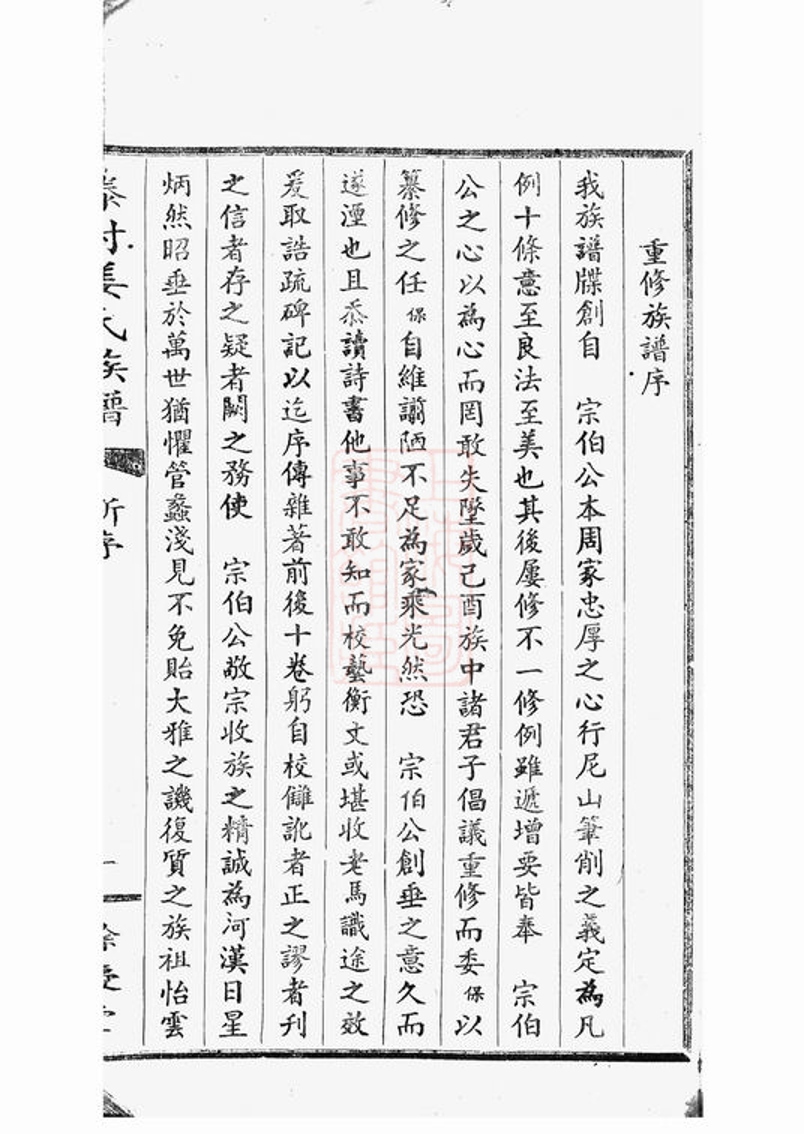 重修族譜序
我族譜牒創自　宗伯公本周家忠厚之心行尼山筆削之義定為凡
例十條意至良法至美也其後屢修不一修例雖遞增要皆奉　宗伯
公之心以為心而罔敢失墜歲己酉族中諸君子倡議重修而委保以
纂修之任保自維譾陋不足為家乘光然恐　宗伯公創垂之意久而
遂湮也且忝讀詩書他事不敢知而校藝衡文或堪收老馬識途之效
爰取誥疏碑記以迄序傳雜著前後十卷躬自校讎訛者正之謬者刋
之信者存之疑者闕之務使　宗伯公敬宗收族之精誠為河漢日星
炳然昭垂於萬世猶懼管蠡淺見不免貽大雅之譏復質之族祖怡雲
姜氏族譜
新序